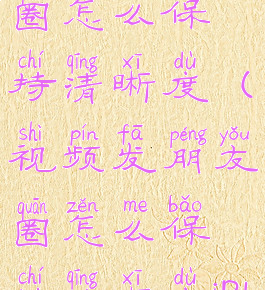 圈怎么保
chí qīng xī dù
持清晰度（
shì pín fā péng yǒu
视频发朋友
quān zěn me bǎo
圈怎么保
chí qīng xī dù